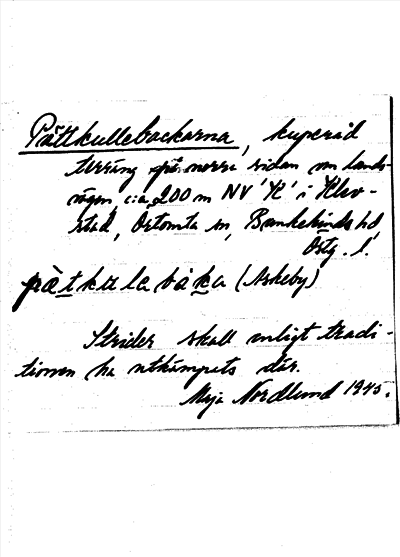 Pättkullebackarna, kuperad
terräng på norra sidan om lands-
vägen, c:a 200 m NV 'K' i Klev-
stad, Örtomta sn, Bankekinds hd,
Östg. l.
pä̀tkulabàka (Askeby)
Strider skall enligt tradi-
tionen ha utkämpats där.
Maja Nordlund 1945.